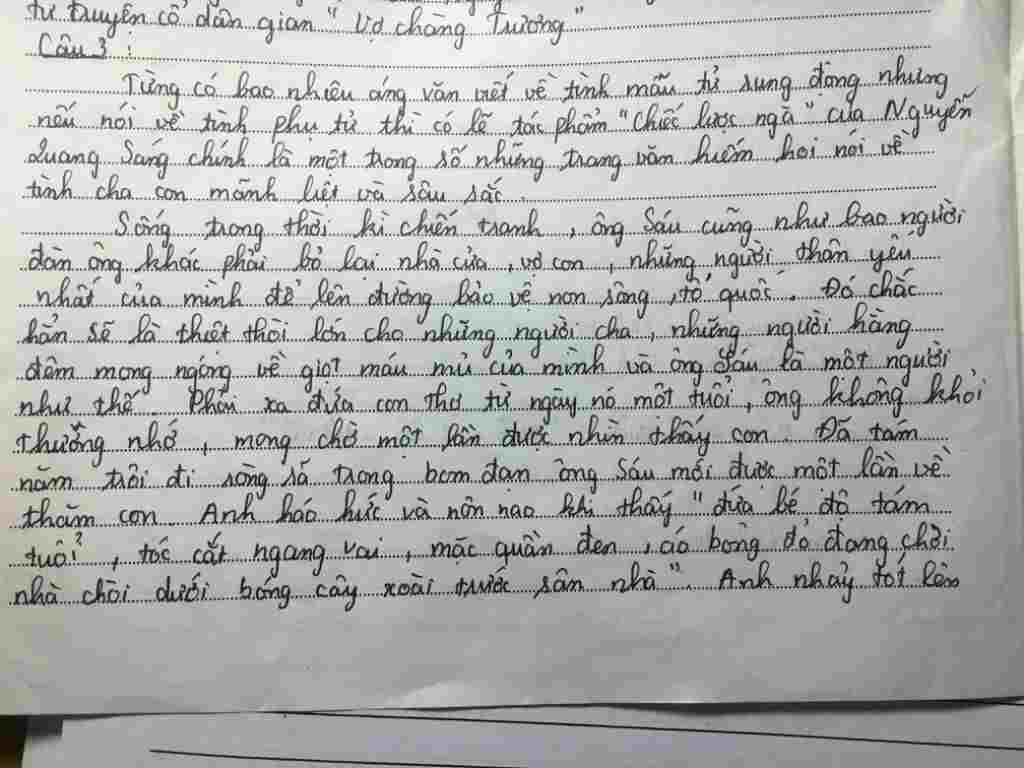 từ truyện cổ dân gian "Vợ chàng Trương"
Câu 3:
Từng có bao nhiêu áng văn viết về tình mẫu tử sung động nhưng
nếu nói về tình phụ tử thì có lẽ tác phẩm "Chiếc lược ngà" của Nguyễn
Quang Sáng chính là một trong số những trang văn hiếm hoi nói về
tình cha con mãnh liệt và sâu sắc.
Sống trong thời kì chiến tranh, ông Sáu cũng như bao người
đàn ông khác phải bỏ lại nhà cửa, vợ con, những người thân yêu
nhất của mình để lên đường bảo vệ non sông, tổ quốc. Đó chắc
hẳn sẽ là thiệt thòi lớn cho những người cha, những người hằng
đêm mong ngóng về giọt máu mủ của mình và ông Sáu là một người
như thế. Phải xa đứa con thơ từ ngày nó một tuổi, ông không khỏi
thương nhớ, mong chờ một lần được nhìn thấy con. Đã tám
năm trôi đi ròng rã trong bom đạn ông Sáu mới được một lần về
thăm con. Anh háo hức và nôn nao khi thấy "đứa bé độ tám
tuổi, tóc cắt ngang vai, mặc quần đen, áo bông đỏ đang chơi
nhà chòi dưới bóng cây xoài trước sân nhà". Anh nhảy tót lên